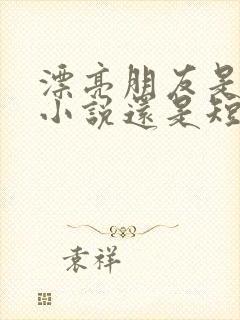 漂亮朋友是
小説還是短
袁祥